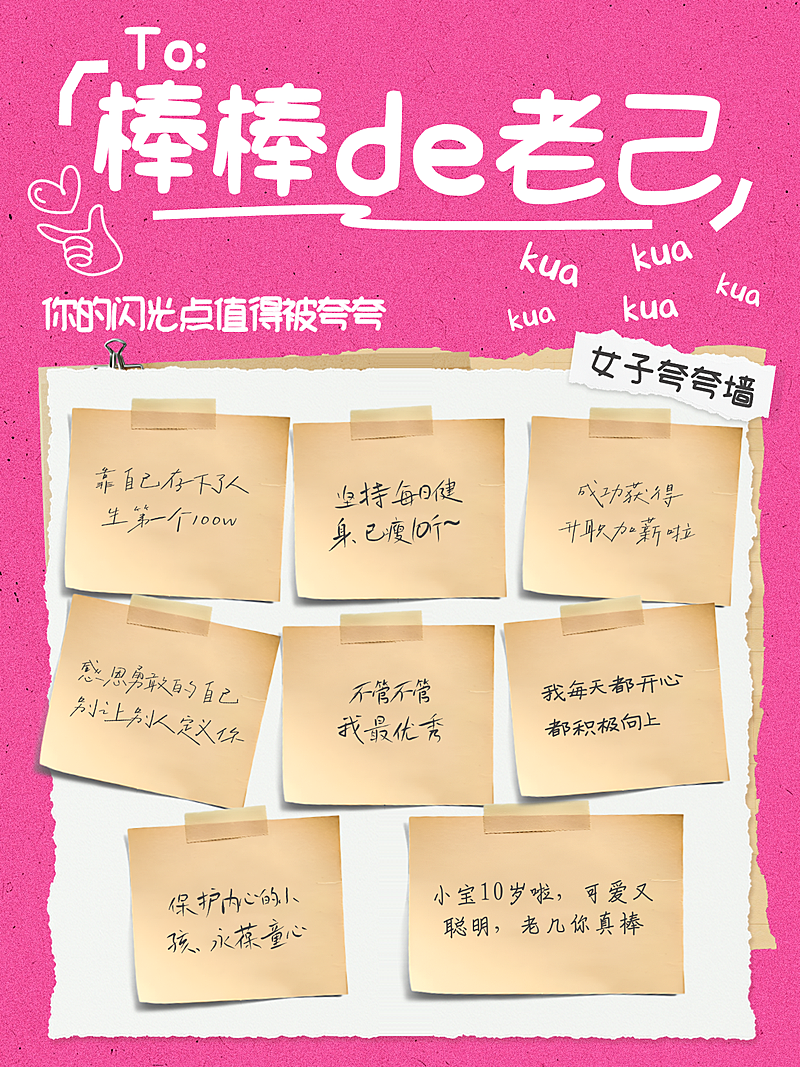 To:
「棒棒de老己」
kua
kua
kua
kua
kua
你的闪光点值得被夸夸
女子夸夸墙
靠自己存下了人
生第一个100w
坚持每日健
身、已瘦10斤~
成功获得
升职加薪啦
感恩勇敢的自己
别让别人定义你
不管不管
我最优秀
我每天都开心
都积极向上
保护内心的小
孩、永葆童心
小宝10岁啦，可爱又
聪明，老几你真棒